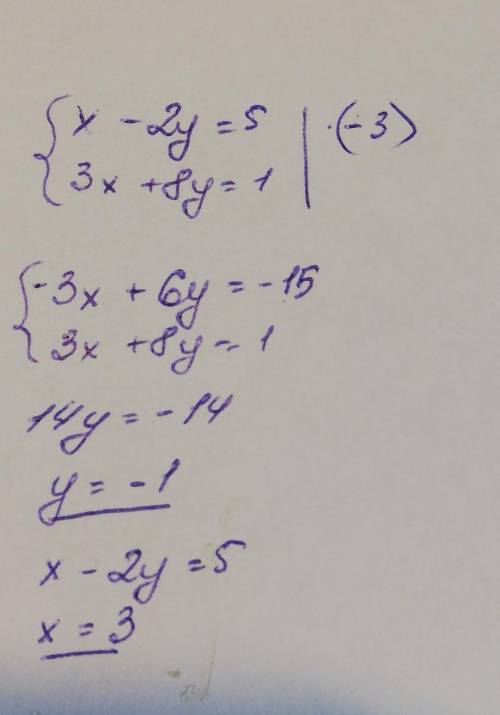 x - 2y = 5 | ·(-3)
3x + 8y = 1
-3x + 6y = -15
3x + 8y = 1
14y = -14
y = -1
x - 2y = 5
x = 3